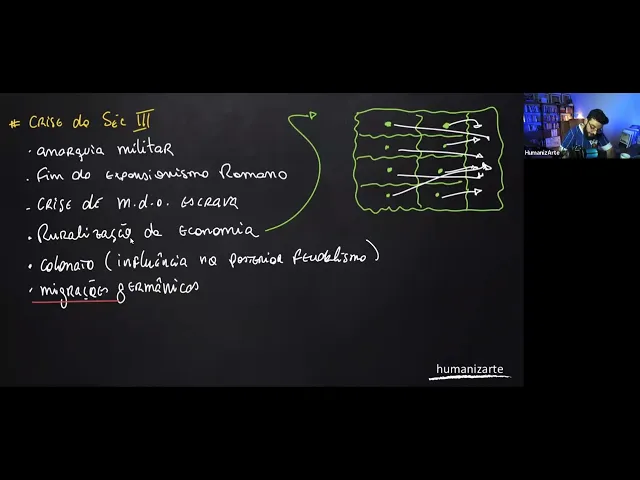 # CRISE do Séc III
· anarquia militar
· Fim do Expansionismo Romano
· CRISE DE M.D.O. ESCRAVA
· Ruralização da Economia
· colonato (influência no posterior feudalismo)
· migrações germânicos
humanizarte
HumanizArte